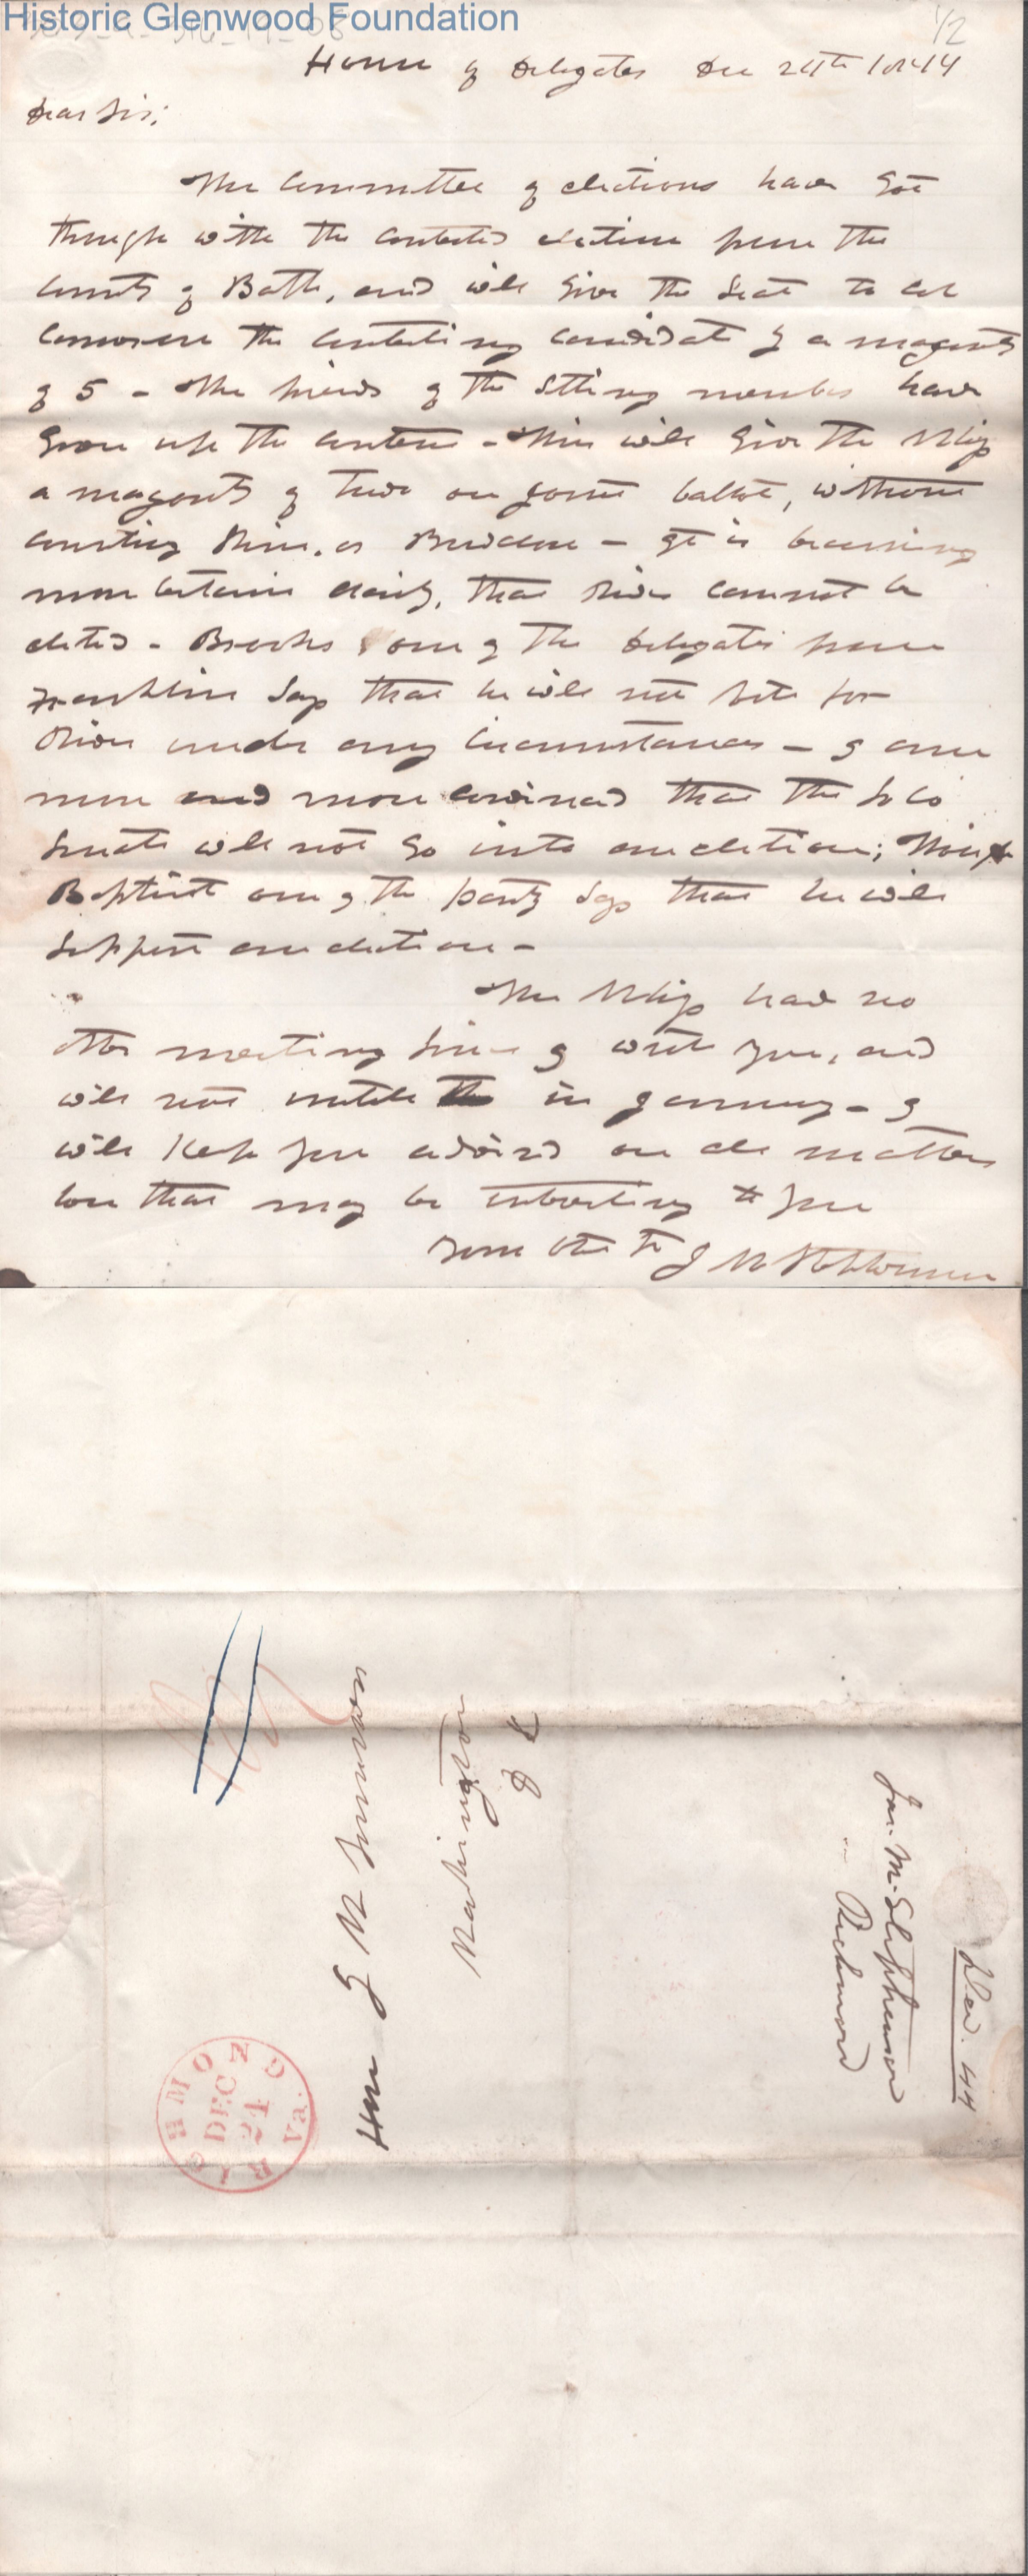 Historic Glenwood Foundation
1/2
House of Delegates Dec 24th 1844
Dear Sir;
The Committee of elections have got
through with the contested election from the
County of Bath, and will give the seat to Col
the contesting candidate by a majority
of 5 - The friends of the sitting member have
given up the contest - This will give the Whigs
a majority of two on joint ballot, without
counting Rives. or - It is becoming
more certain daily, that Rives cannot be
elected - Brooks one of the Delegates from
Franklin says that he will not vote for
Rives under any circumstances - I am
more and more convinced that the Loco
Senate will not go into an election;
Baptist one of the party says that he will
support an election -
The Whigs have no
other meeting since I wrote you, and
will not until in January - I
will keep you advised on all matters
here that may be interesting to you
Your obt St J M Stephenson
Hon G W Summers
Washington
D C
RICHMOND Va.
DEC
24
Dec. 44
Jas. M. Stephenson
Richmond